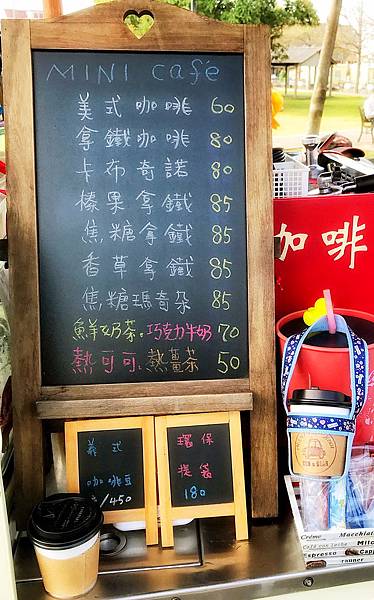 MINI café
美式咖啡 60
拿鐵咖啡 80
卡布奇諾 80
榛果拿鐵 85
焦糖拿鐵 85
香草拿鐵 85
焦糖瑪奇朵 85
鮮奶茶.巧克力牛奶 70
熱可可.熱薑茶 50
咖啡
義式
咖啡豆
/450
環保
提袋
180
Crème
Macchiato
Café con leche
Espresso